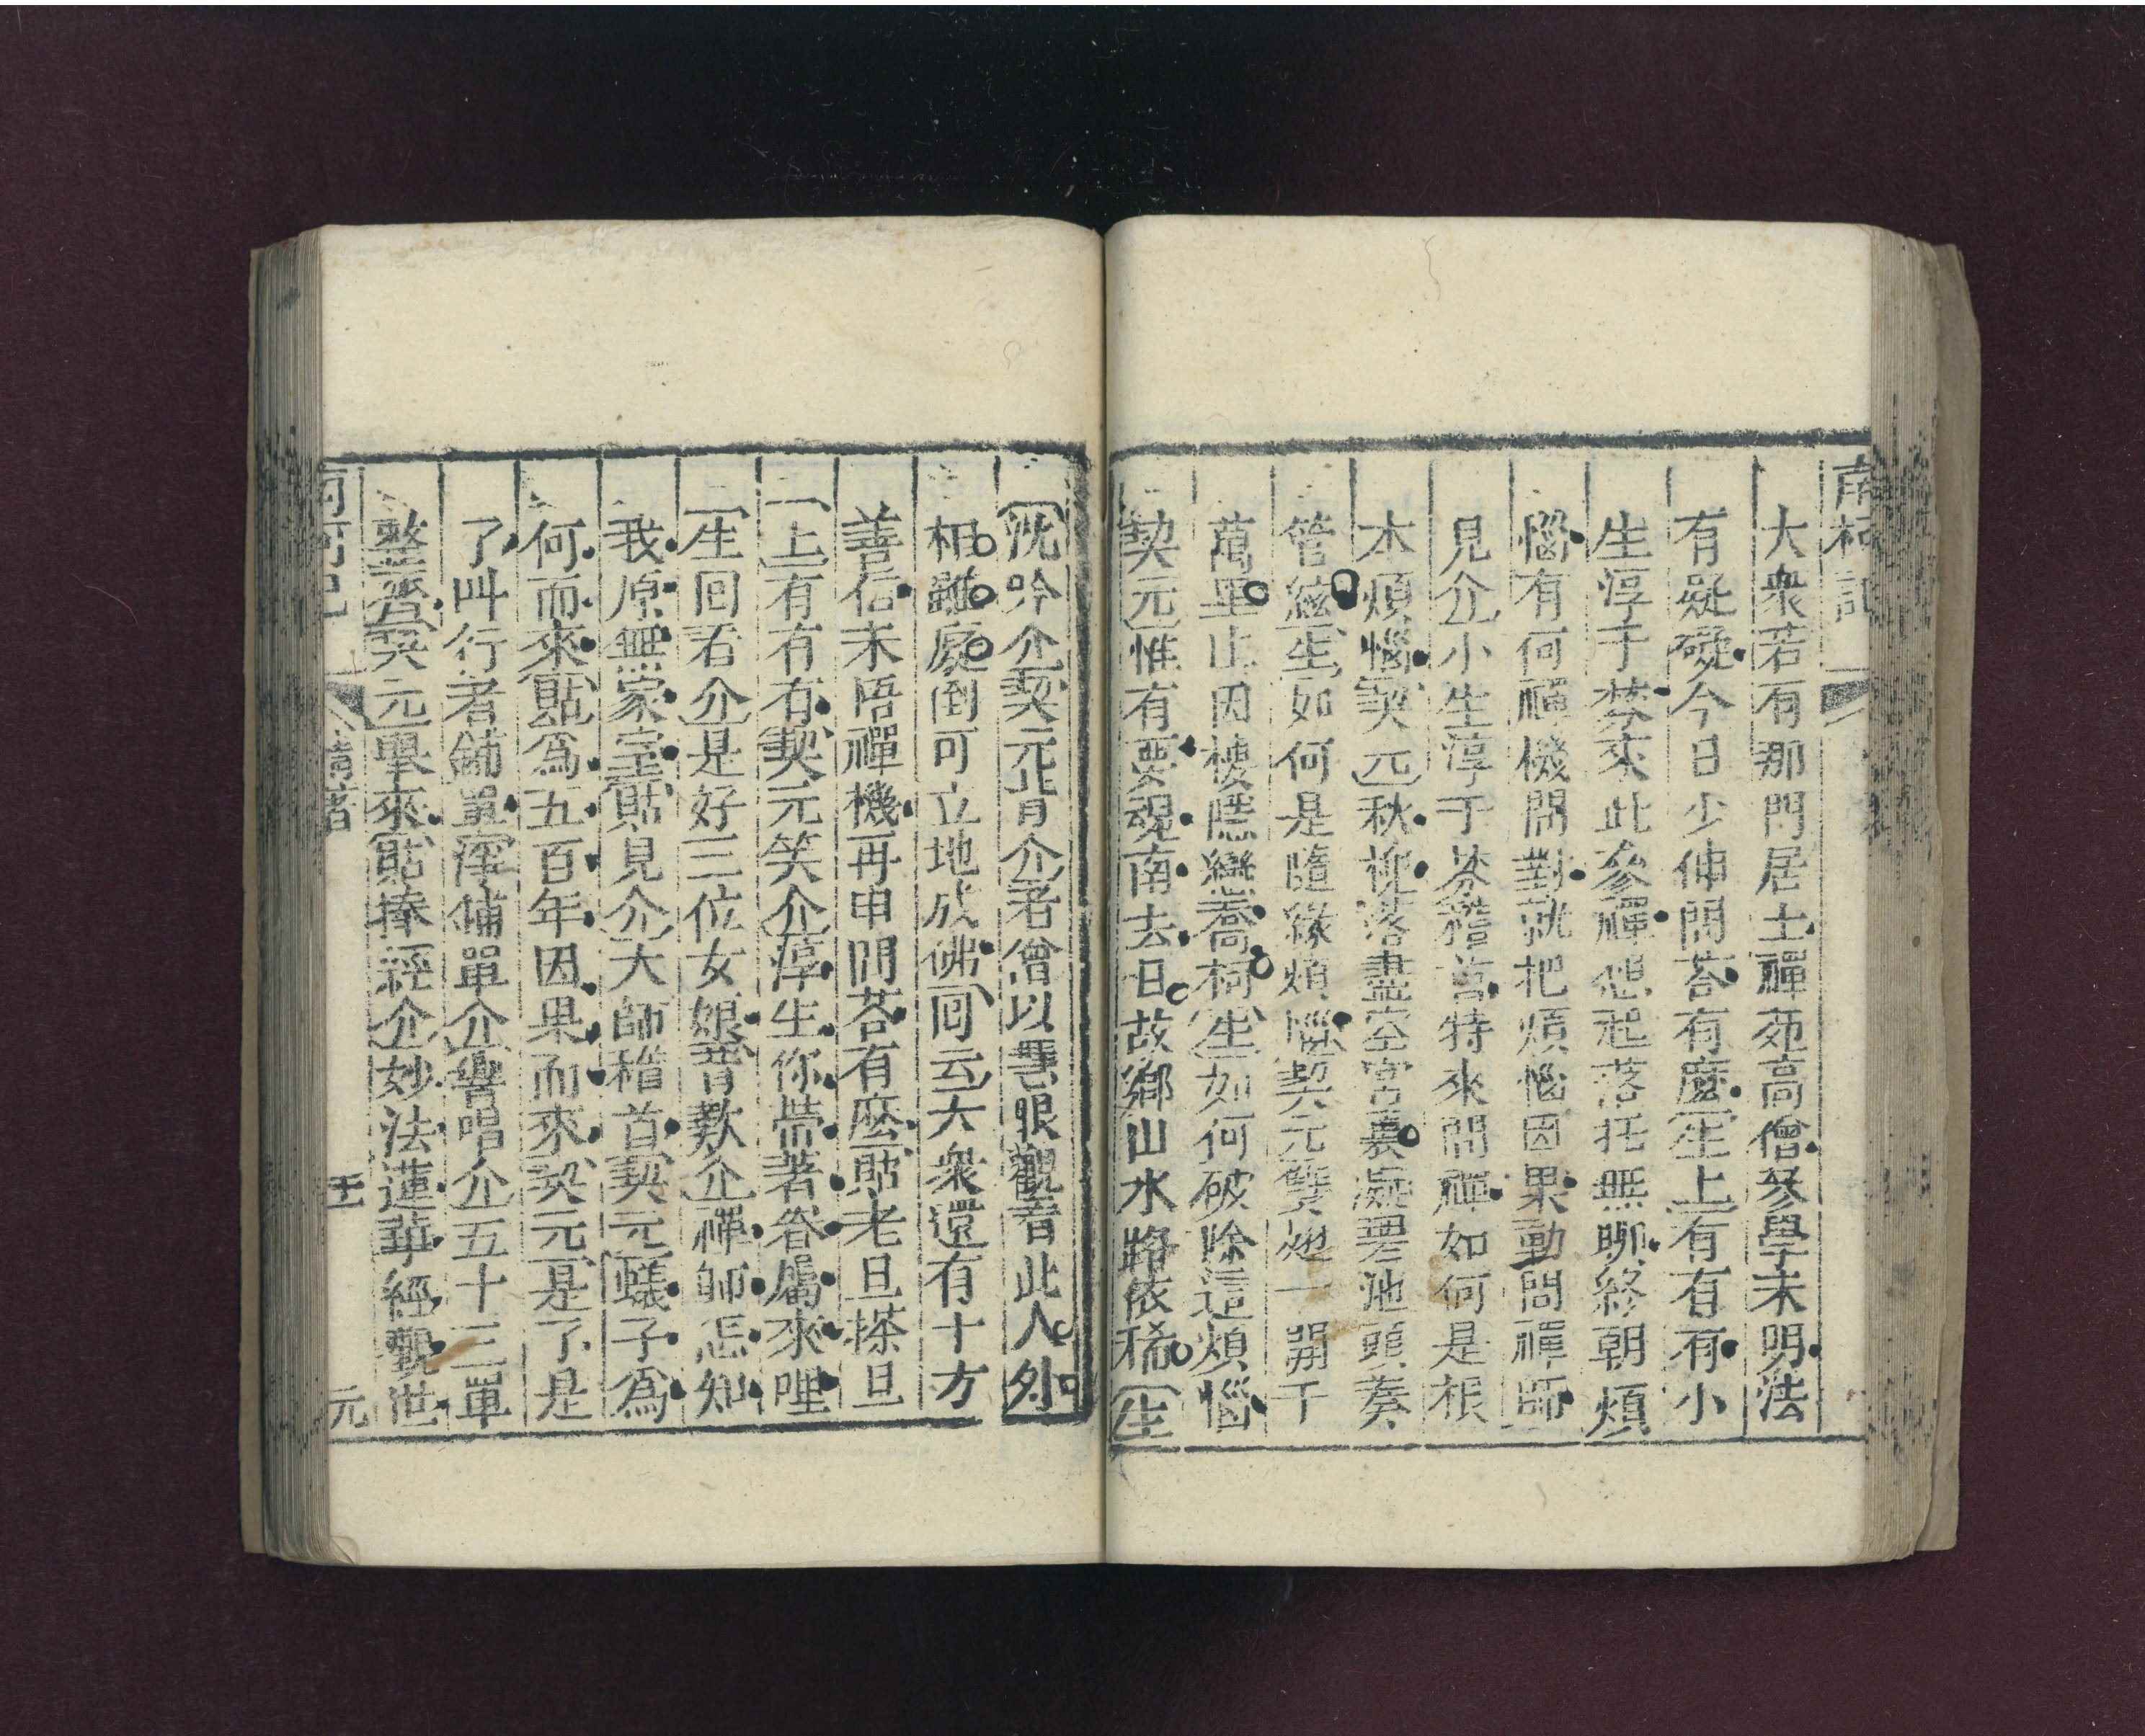 南柯記
大衆若有那門居士禪苑高僧參學未明法
有疑礙今日少伸問荅有麽(生上)有有有小
生淳于棼來此參禪想起落托無聊終朝煩
惱有何禪機問對就把煩惱因果動問禪師
見介)小生淳于棼稽首特來問禪如何是根
本煩惱(契元)秋槐落盡空宮裏凝碧池頭奏
管絃(生)如何是隨緣煩惱(契元)雙翅一開千
萬里止因棲隱戀喬柯(生)如何破除這煩惱
契元)惟有夢魂南去日故鄉山水路依稀(生
(沈吟介契元背介)老僧以慧眼觀看此人外
相雖癡倒可立地成佛(回云)大衆還有十方
善信未悟禪機再申問荅有麽(貼老旦搽旦
(上)有有有(契元笑介)淳生你帶著眷屬來哩
(生回看介)是好三位女娘(背歎介)禪師怎知
我原無家室(貼見介)大師稽首(契元)蟻子爲
何而來(貼)爲五百年因果而來(契元)是了是
了叫行者鋪單(淨鋪單介響唱介)五十三單
整齊(契元)舉來(貼捧經介)妙法蓮華經觀世